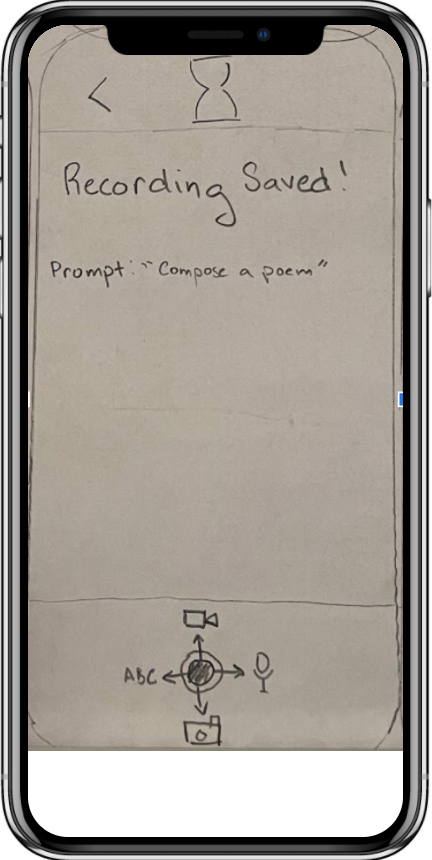 Recording Saved!
Prompt: "Compose a poem"
ABC